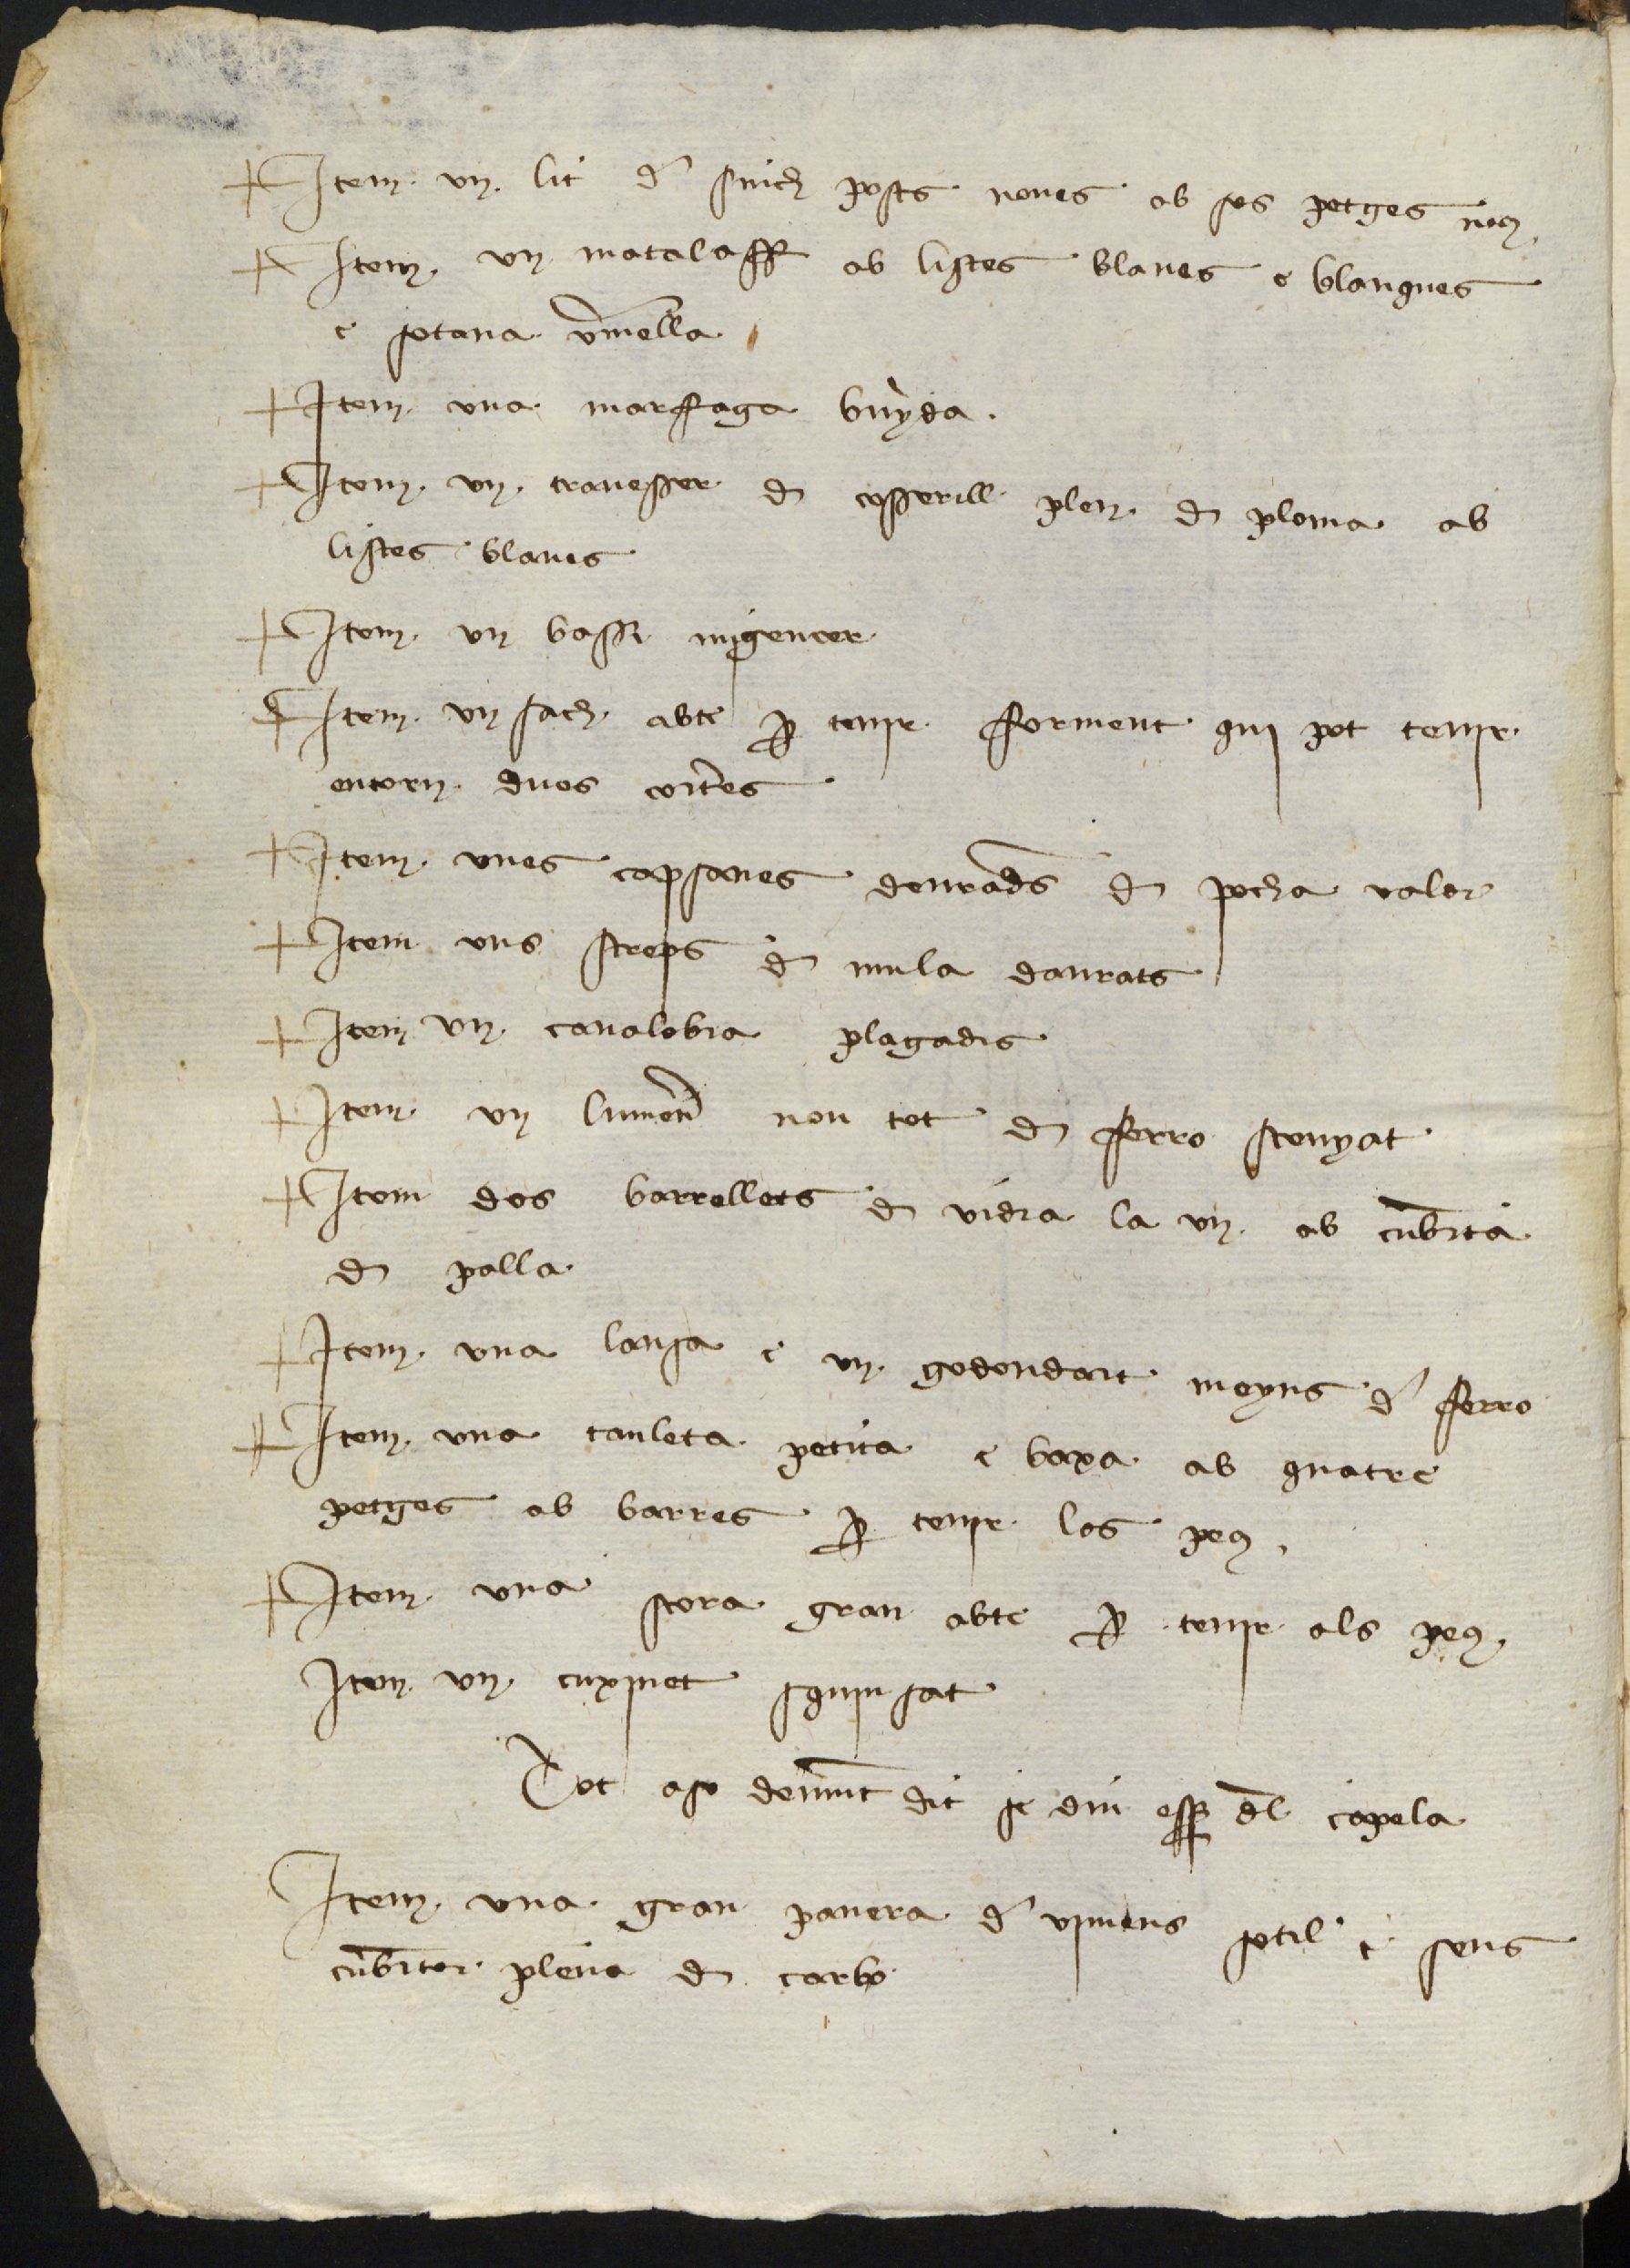 + Item un lit de sinch posts noues ab sos petges nous
+ Item un matalaff ab listes blaues e blanques
e sotana vmella
+ Item una marffaga buyda
+ Item un trauesser de cosserill plen de ploma ab
listes blaues
+ Item un bassi migencer
+ Item un sach abte per tenir fforment qui pot tenir
entorn dues cortes
+ Item unes capsanes deurads de pocha valor
+ Item uns streps de mula daurats
+ Item un canalobra plagadis
+ Item un lumen nou tot de fferro stenyat
+ Item dos barrellets de vidra la un ab cubrta
de palla
+ Item una lansa e un godendart meyns de fferro
+ Item una tauleta petita e baxa ab quatre
petges ab barres per tenir los peus
+ Item una stora gran abte per tenir als peus
Item un cuxinet squinsat
Tot aso demunt dit se diu esser del capela
Item una gran panera de vimens sotil e sens
cubrtor plena de carbo